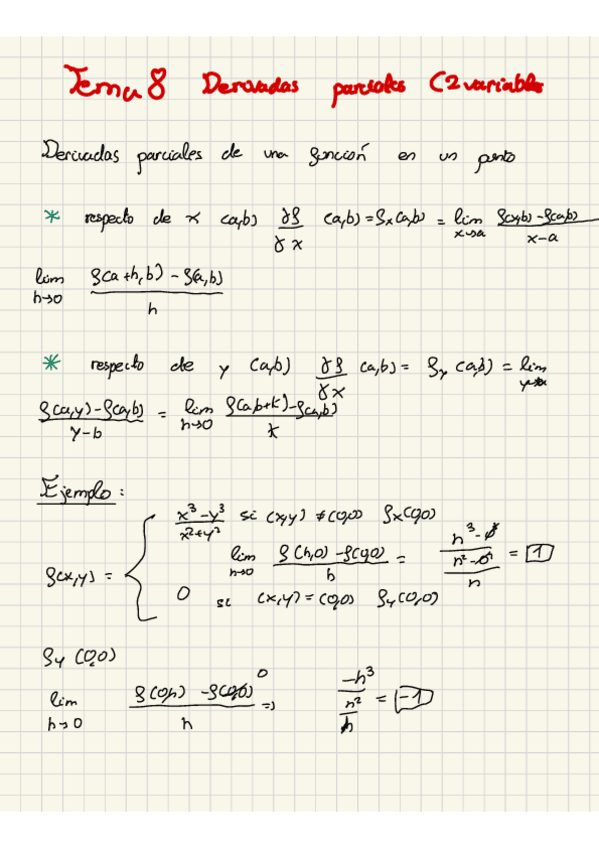 Tema 8 Derivadas parciales (2 variables
Derivadas parciales de una función en un punto
* respecto de x (a,b) ∂f/∂x (a,b) = fx(a,b) = lim x→a (f(x,b) - f(a,b))/(x-a)
lim h→0 (f(a+h,b) - f(a,b))/h
* respecto de y (a,b) ∂f/∂x (a,b) = fy (a,b) = lim
(f(a,y) - f(a,b))/(y-b) = lim h→0 (f(a,b+k) - f(a,b))/k
Ejemplo:
f(x,y) = { (x³-y³)/(x²+y²) si (x,y) ≠ (0,0) fx(0,0)
lim h→0 (f(h,0) - f(0,0))/h = ((h³-0³)/(h²-0²))/h = 1
0 si (x,y) = (0,0) fy(0,0)
fy (0,0)
lim h→0 (f(0,h) - f(0,0) 0)/h => (-h³/h²)/h = -1